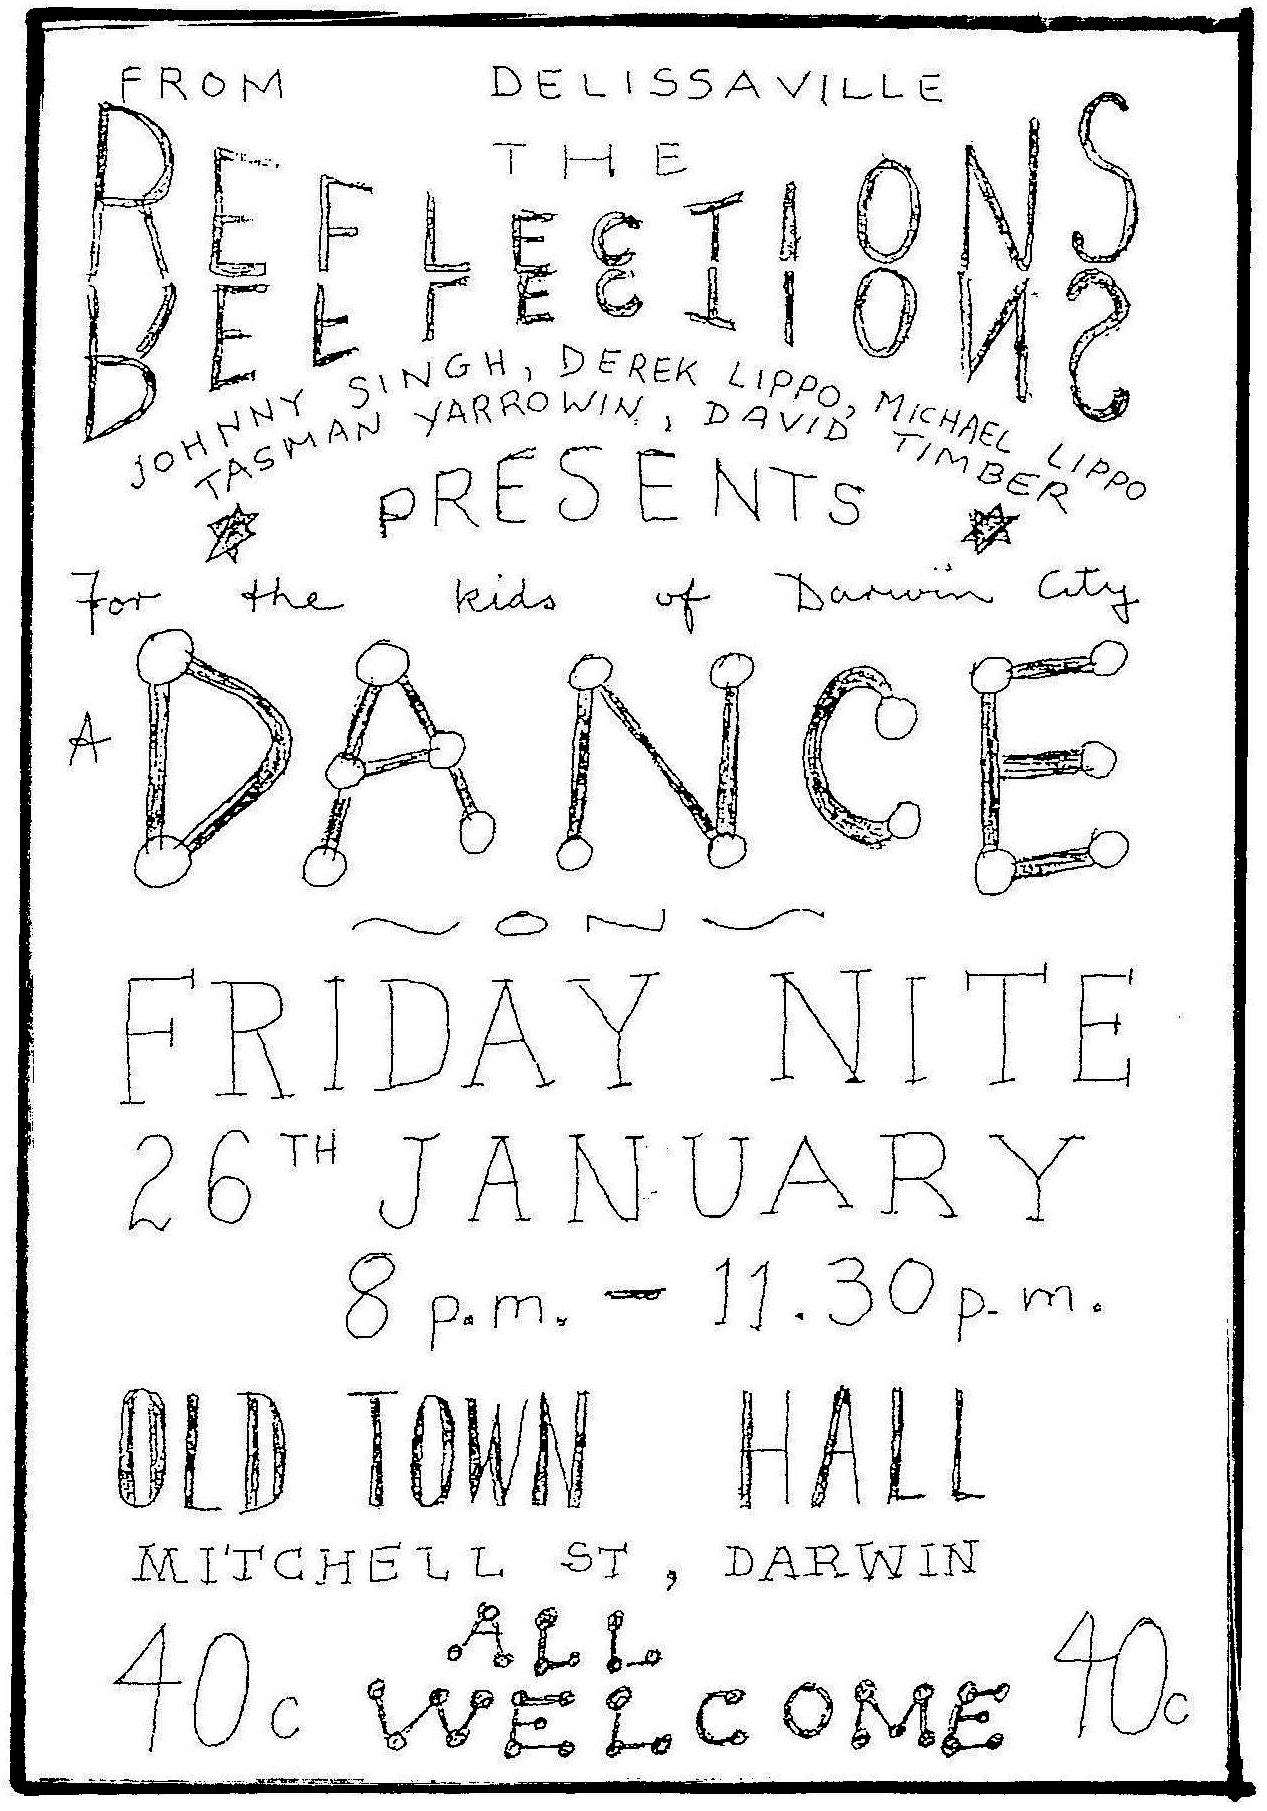 FROM DELISSAVILLE
THE
REFLECTIONS
JOHNNY SINGH, DEREK LIPPO, MICHAEL LIPPO
TASMAN YARROWIN, DAVID TIMBER
PRESENTS
For the kids of Darwin City
A DANCE
~ ON ~
FRIDAY NITE
26TH JANUARY
8 p.m. - 11.30 p.m.
OLD TOWN HALL
MITCHELL ST, DARWIN
ALL
40c WELCOME 40c